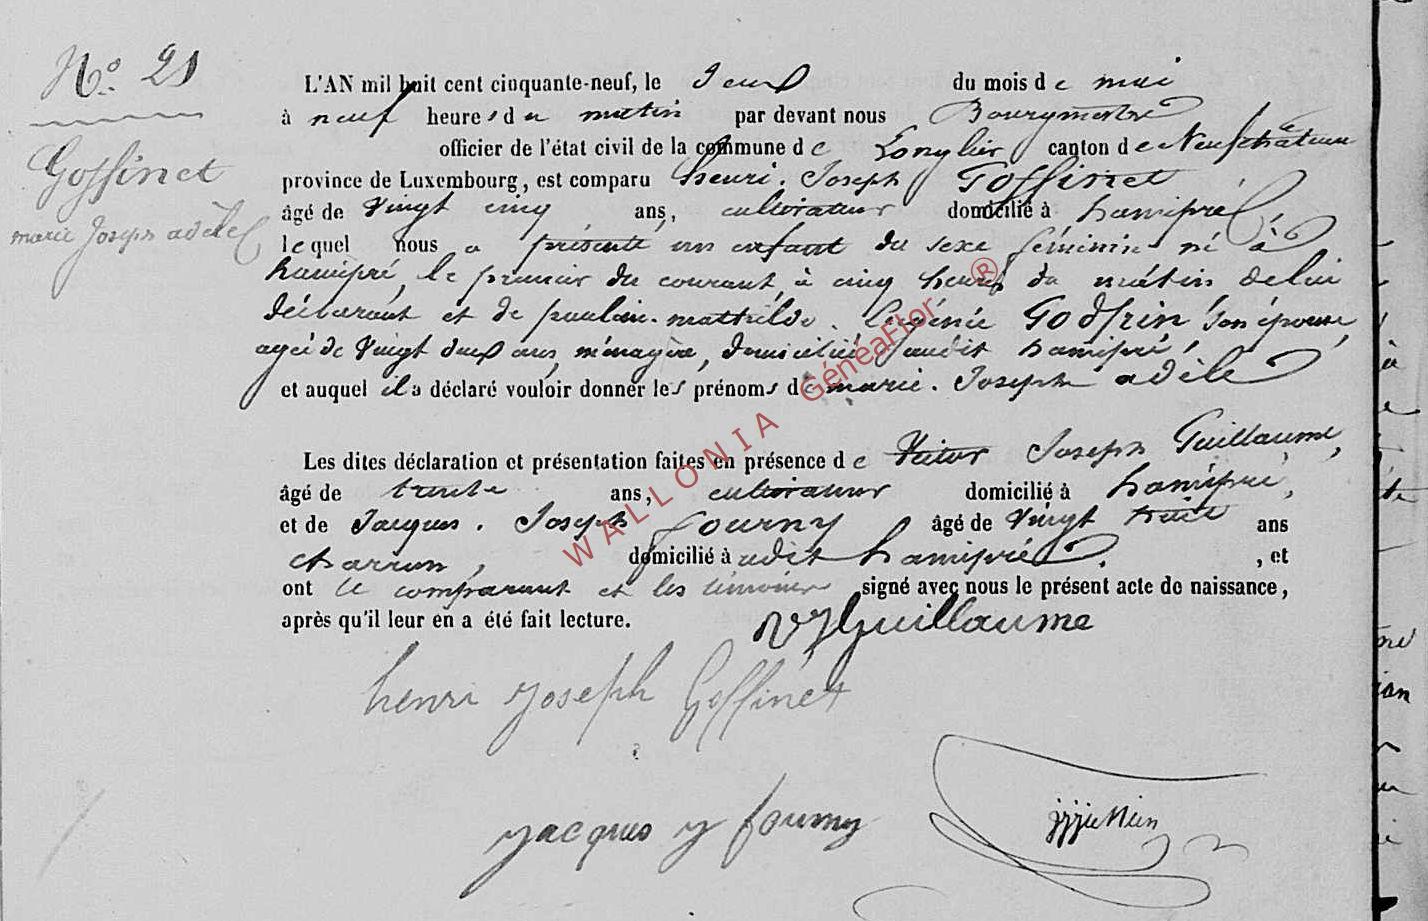 No. 21
Goffinet
marie Joseph adèle
L'AN mil huit cent cinquante-neuf, le deux du mois de mai
à neuf heures du matin par devant nous Bourgmestre
officier de l'état civil de la commune de Longlier canton de Neufchâteau
province de Luxembourg, est comparu henri. Joseph Goffinet
âgé de vingt cinq ans, cultivateur domicilié à hamipré
lequel nous a présenté un enfant du sexe féminin né à
hamipré, le premier du courant, à cinq heures du matin de lui
déclarant et de pauline. mathilde. Eugénie Godfrin, son épouse,
agée de vingt deux ans, ménagère, domiciliée audit hamipré,
et auquel il a déclaré vouloir donner les prénoms de marie. Joseph adèle
Les dites déclaration et présentation faites en présence de Victor Joseph Guillaume,
âgé de trente ans, cultivateur domicilié à hamipré,
et de Jacques. Joseph fourny âgé de vingt huit ans
charron, domicilié à udit hamipré. , et
ont le comparant et les témoins signé avec nous le présent acte de naissance,
après qu'il leur en a été fait lecture.
VJ Guillaume
henri joseph Goffinet
jacques j fourny
WALLONIA GénéaFlor ®